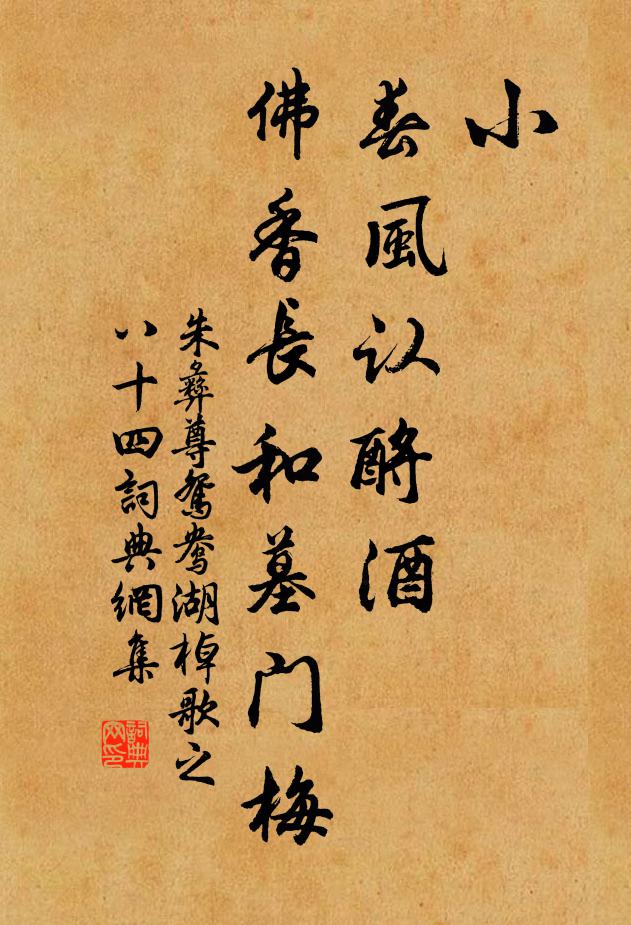 小
春風认酹酒
佛香長和墓門梅
朱彝尊鴛鴦湖棹歌之
八十四詞典網集
詞典網印